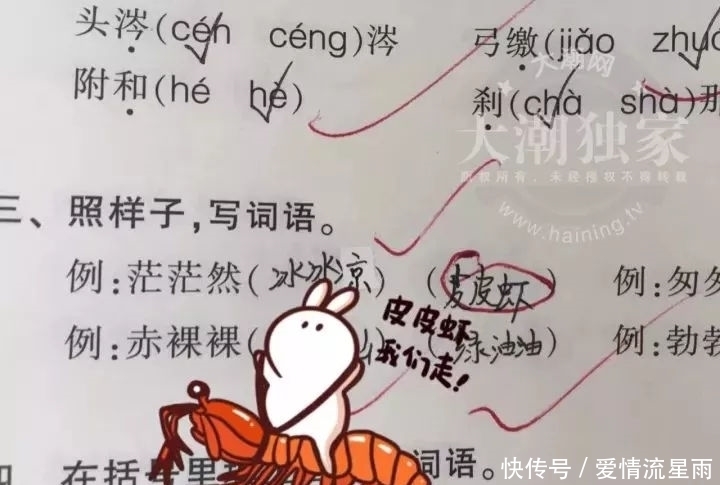 头涔(cén céng)涔 弓缴(jiǎo zhuó
附和(hé hè) 刹(chà shà)那
大潮网
大潮独家
版权所有，未经授权不得转载
www.haining.tv
三、照样子,写词语。
例:茫茫然(冰冰凉) (皮皮虾) 例:匆匆
例:赤裸裸( (绿油油) 例:勃勃
皮皮虾
我们走!
四、在括号里 词语。
快传号 / 爱情流星雨